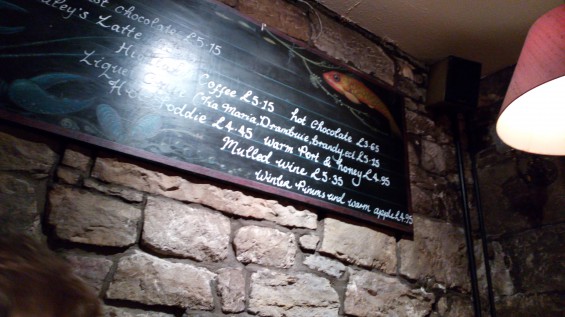 hot chocolate £5.15
Latte
Coffee £5.15 hot chocolate £3.65
Tia Maria, Drambuie, brandy, ed £5.15
Toddie £4.45 warm Port & honey £4.95
Mulled wine £5.35
Winter Pimms and warm apple £4.95